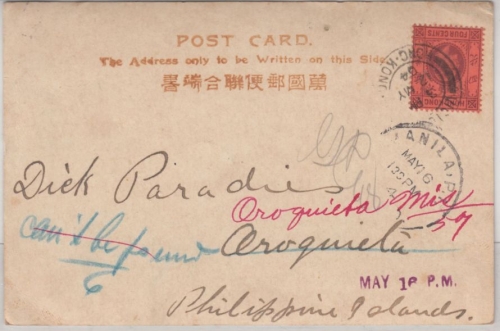 POST CARD.
The Address only to be Written on this Side
萬國郵便聯合端書
FOUR CENTS
HONG KONG
MANILA, P.
MAY 16
Dick Paradies
Oroquieta Mis
57
can't be found
6
Oroquieta
MAY 16 P.M.
Philippine Islands.